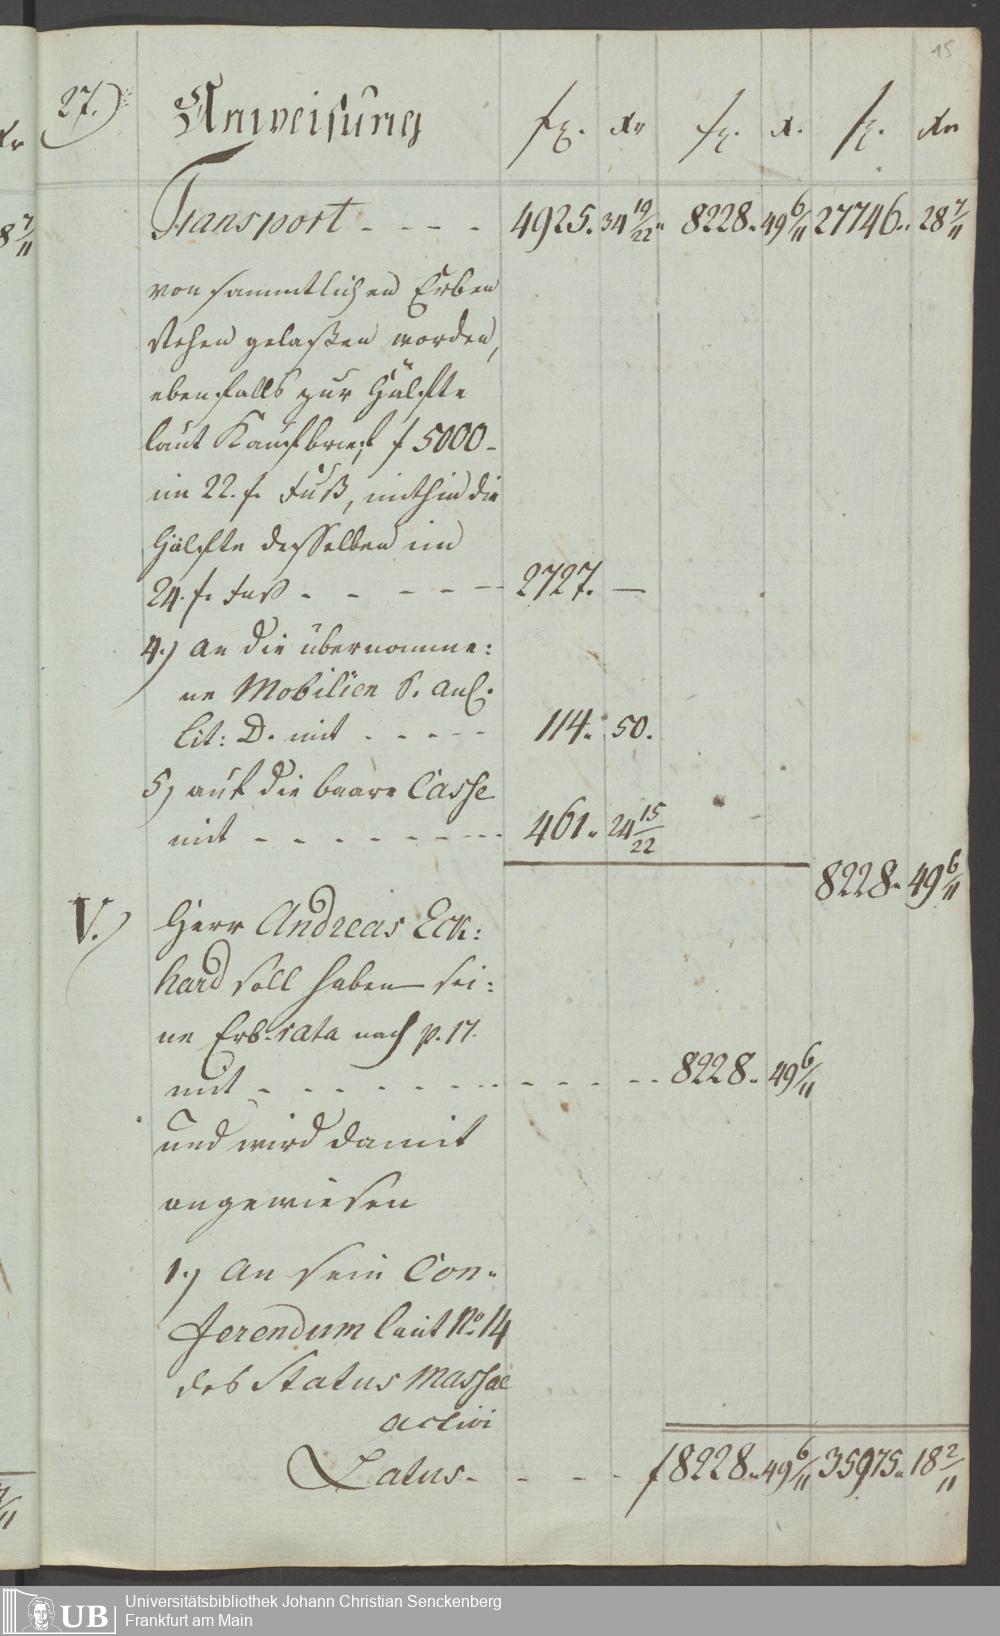 15
27.) Anweisung fx. Xr fx. X. fx. Xr
Transport - - - - 4925. 34 19/22 8228. 49 6/11 27746. 28 7/11
von sammtlichen Erben
stehen gelaßen worden,
ebenfalls zur Hälfte
laut Kaufbrief f 5000 -
im 22. f. Fuß, mithin die
Hälfte desselben im
24. f. Fuß - - - - - 2727. —
4.) an die übernomme:
ne Mobilien S. Anl.
Lit: D. mit - - - - - 114. 50.
5) auf die baare Casse
mit - - - - - - - - 461. 24 15/22
8228. 49 6/11
V.) Herr Andreas Eck:
hard soll haben sei:
ne Erb-rata nach p. 17.
mit - - - - - - - - - - - 8228. 49 6/11
und wird damit
angewiesen
1.) An sein Con-
ferendum laut No. 14
des Status Massae
activi
Latus - - - - f 8228. 49 6/11 35975. 18 2/11
8 7/11
UB
Universitätsbibliothek Johann Christian Senckenberg
Frankfurt am Main